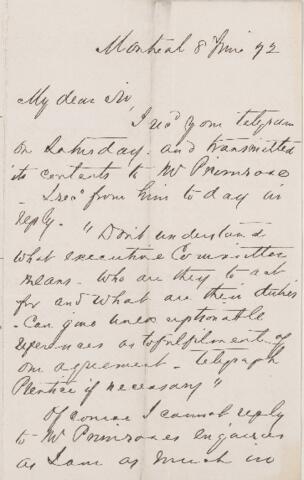 Montreal 8 June 92
My dear Sir,
I recd your telegram
on Saturday and transmitted
its contents to Mr Primrose
- I recd from him to day in
reply. "Dont understand
what executive Committee
means. Who are they to act
for and what are their duties
- Can give unexceptionable
references as to fulfilment of
our agreement - telegraph
Prentice if necessary"
Of course I cannot reply
to Mr Primroses enquiries
as I am as much in